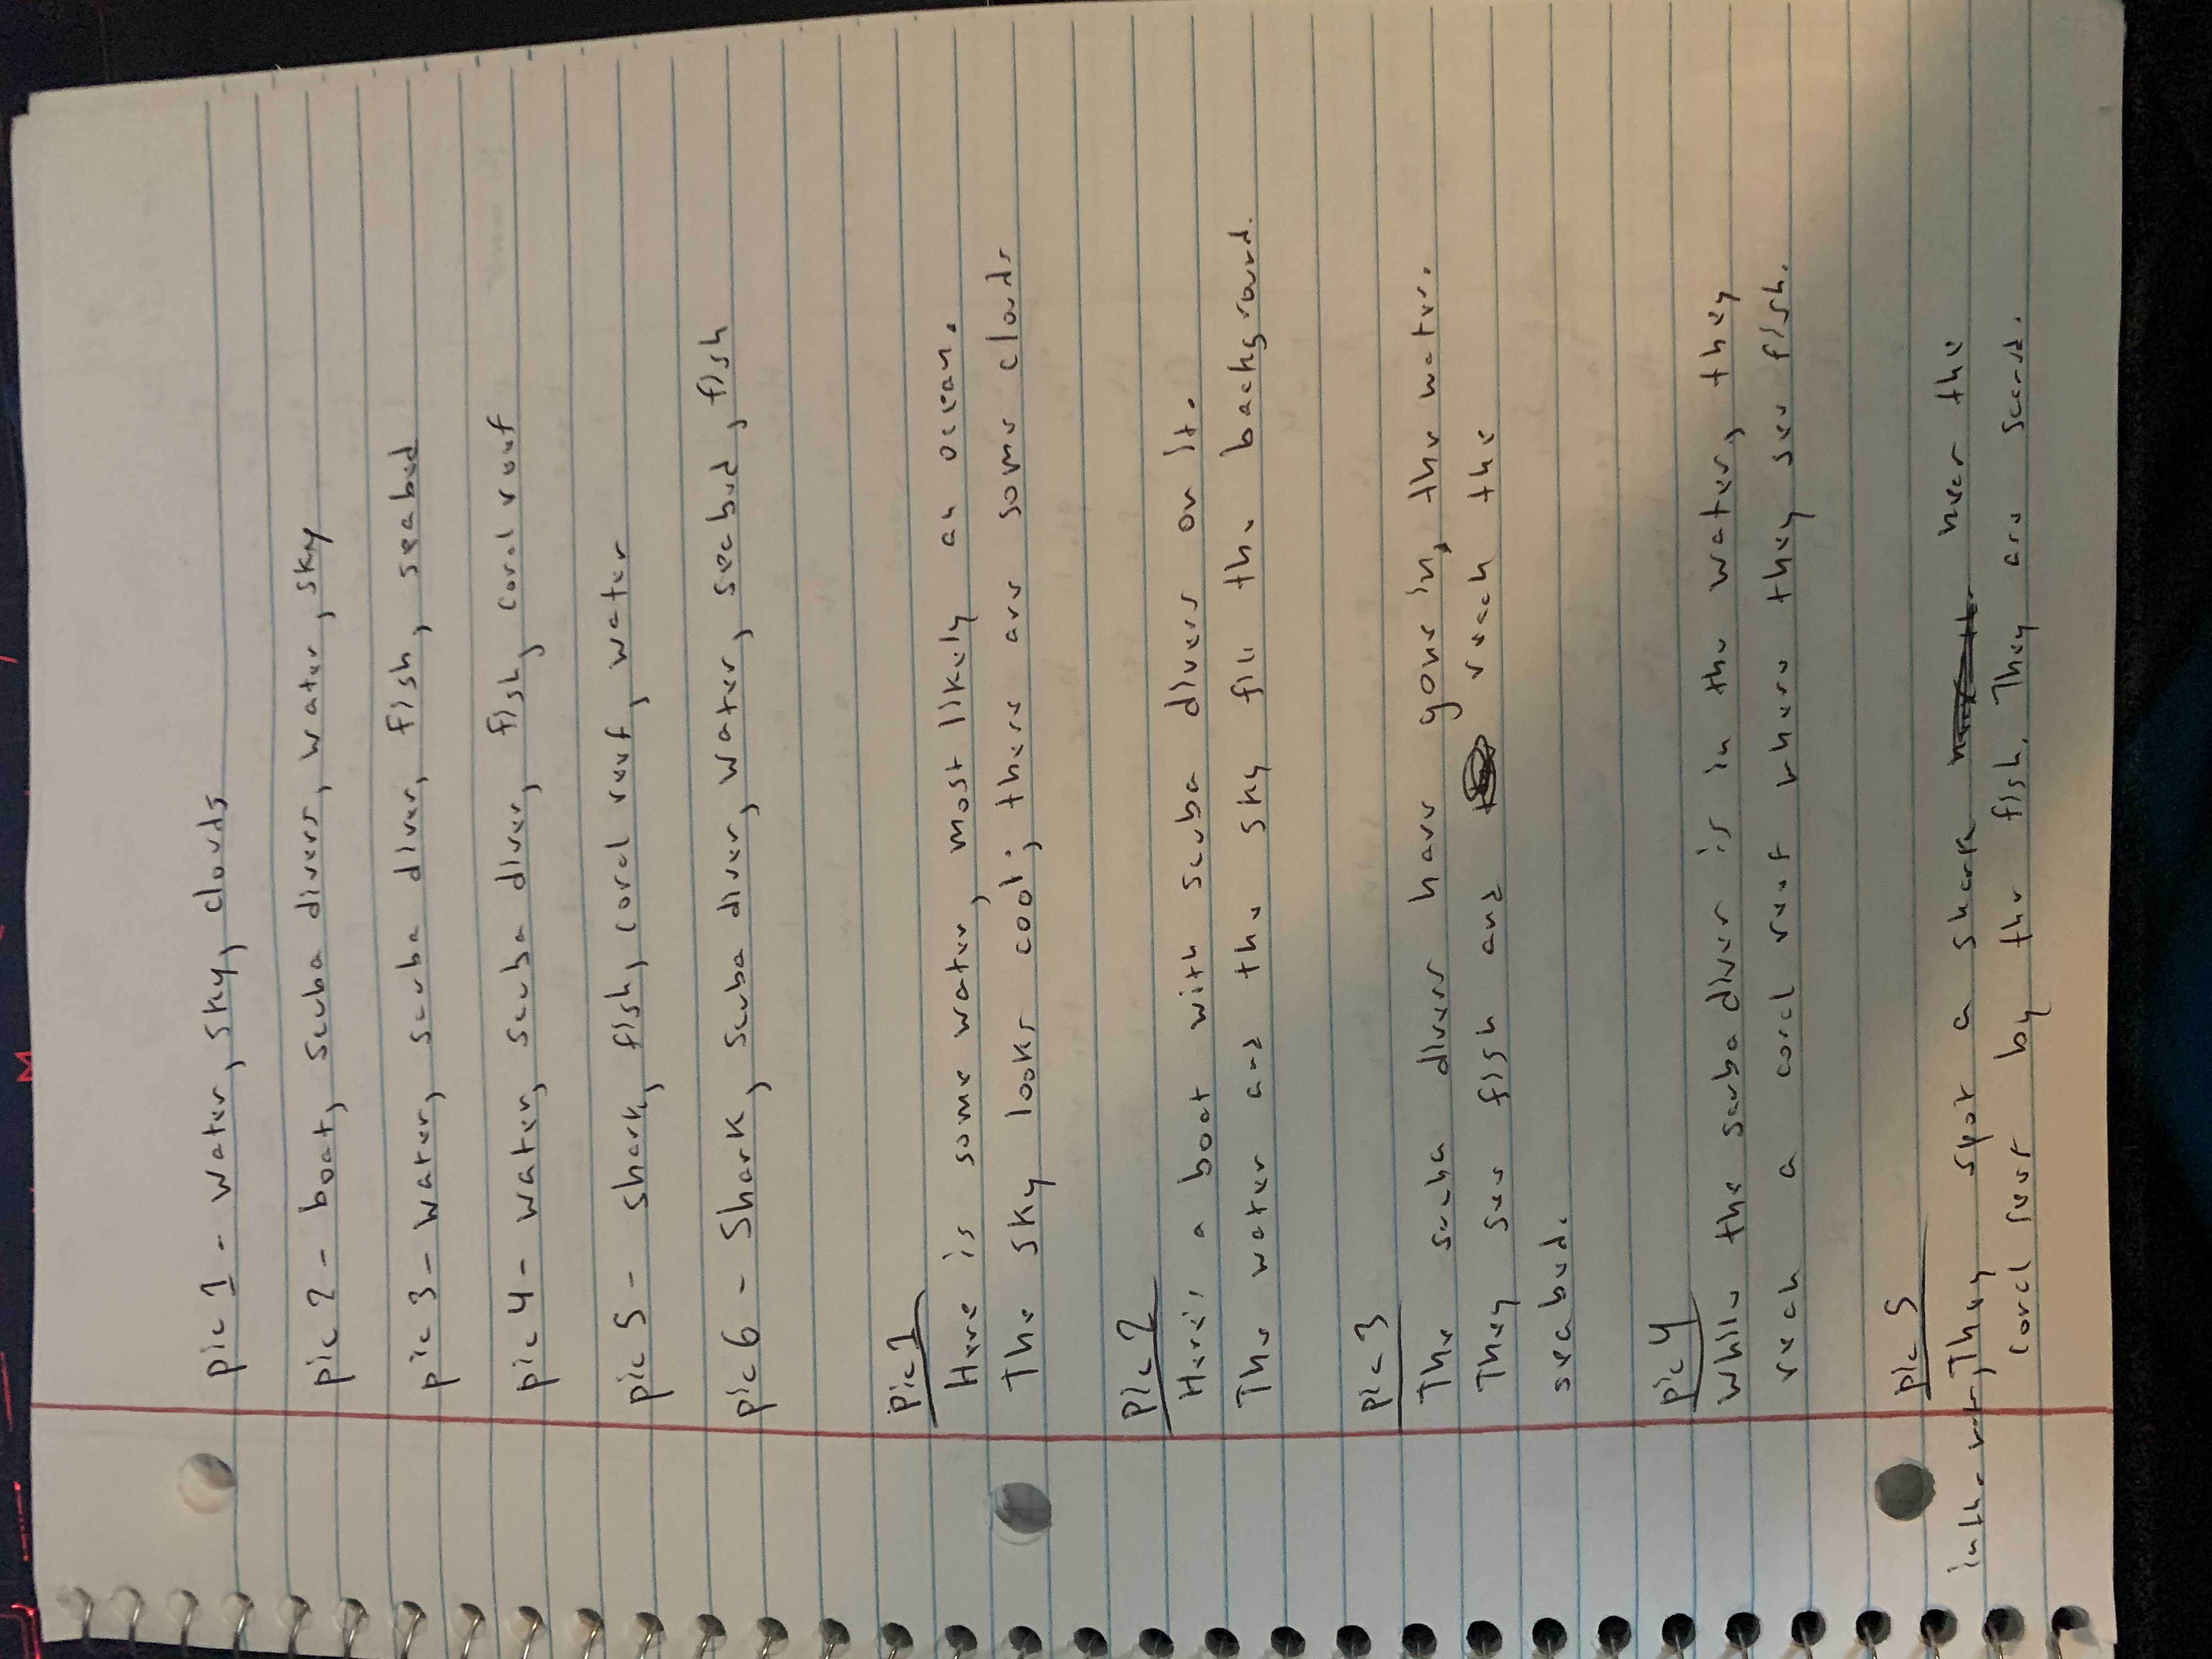 pic 1 - water, sky, clouds
pic 2 - boat, scuba divers, water, sky
pic 3 - water, scuba diver, fish, seabed
pic 4 - water, scuba diver, fish, coral reef
pic 5 - shark, fish, coral reef, water
pic 6 - Shark, scuba diver, water, seabed, fish
Pic 1
Here is some water, most likely an ocean.
The sky looks cool; there are some clouds
Pic 2
Here's a boat with scuba divers on it.
The water and the sky fill the background.
pic 3
The scuba divers have gone in, the water.
They see fish and reach the
seabed.
pic 4
While the scuba diver is in the water, they
reach a coral reef where they see fish.
pic 5
in the water, They spot a shark near the
coral reef by the fish. They are scared.